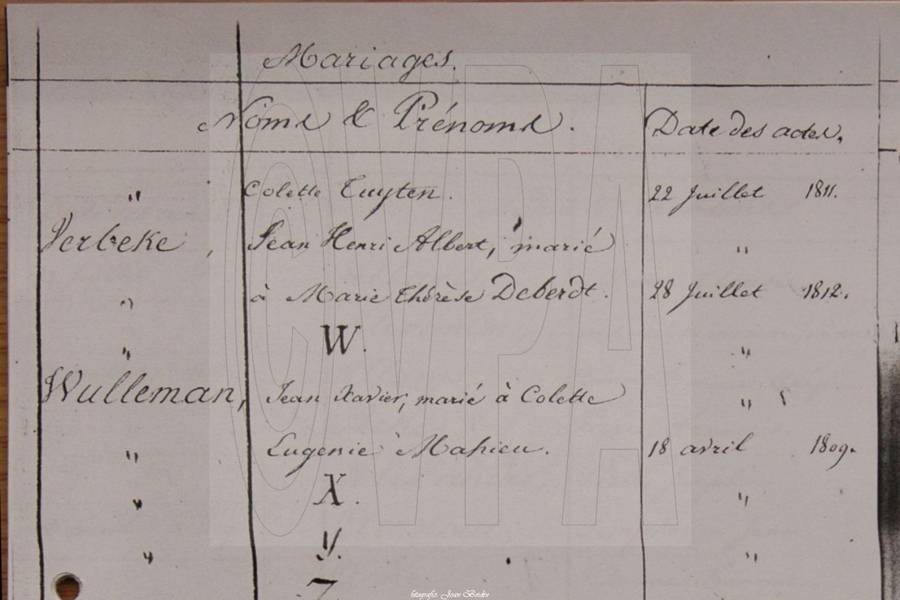 Mariages.
Noms & Prénoms. Date des actes.
" Colette Tuyten. 22 Juillet 1811.
Verbeke, Jean Henri Albert, marié "
" à Marie Thérèse Deberdt. 28 Juillet 1812.
" W. "
Wulleman, Jean Xavier, marié à Colette "
" Eugenie Mahieu. 18 avril 1809.
" X. "
" y. "
Z
©VVPA
fotografie: Joan Borden